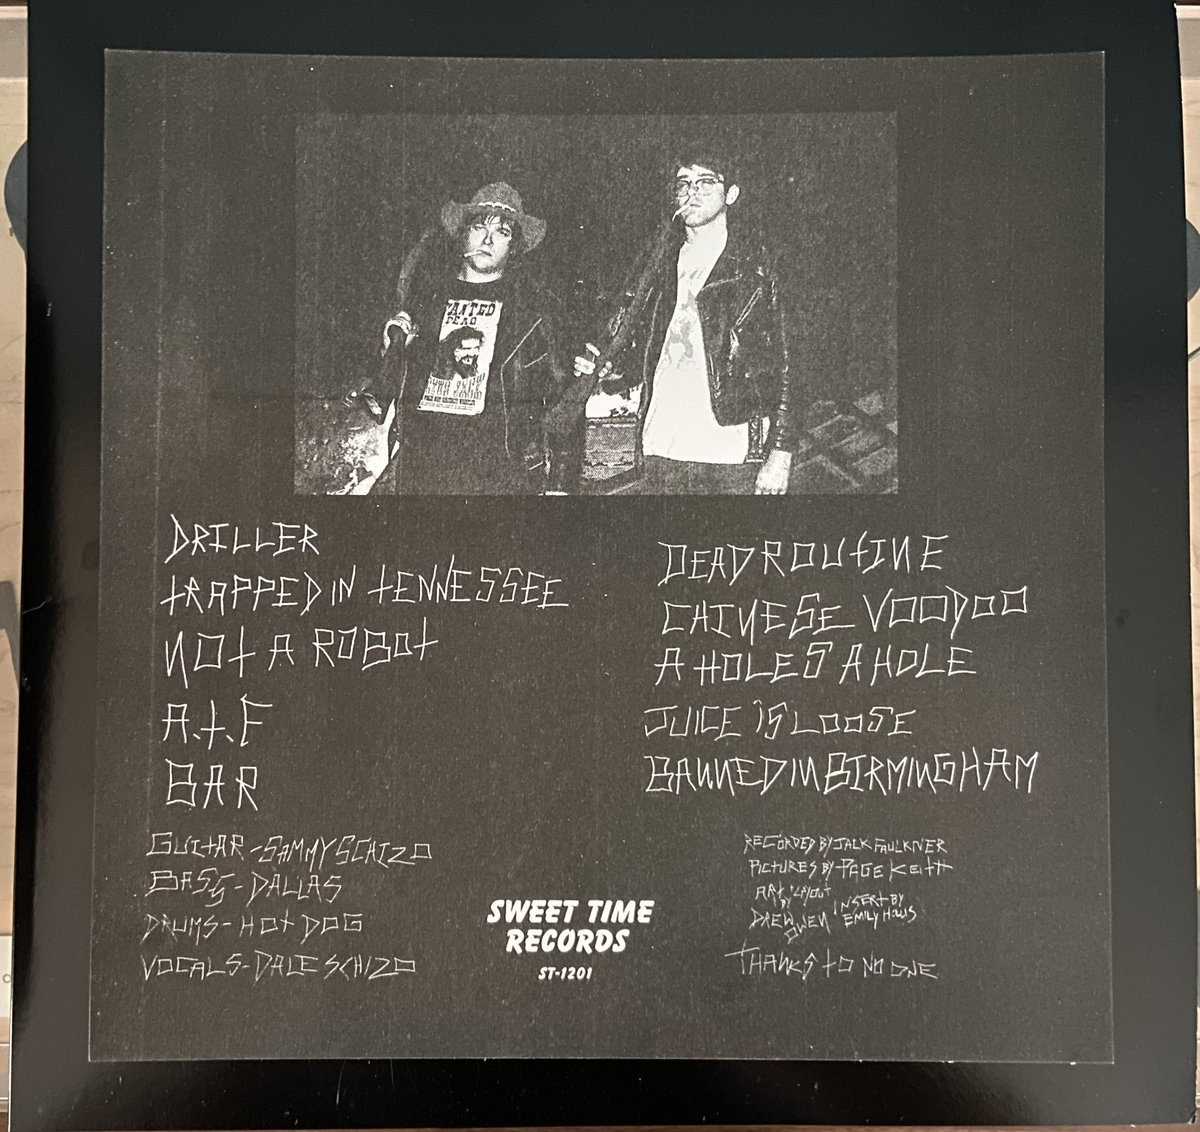 WANTED
DEAD
DRILLER
TRAPPED IN TENNESSEE
NOT A ROBOT
A.T.F
BAR
DEAD ROUTINE
CHINESE VOODOO
A HOLES A HOLE
JUICE IS LOOSE
BANNED IN BIRMINGHAM
GUITAR-SAMMY SCHIZO
BASS-DALLAS
DRUMS-HOT DOG
VOCALS-DALE SCHIZO
SWEET TIME
RECORDS
ST-1201
RECORDED BY JACK FAULKNER
PICTURES BY PAGE KEITH
ART LAYOUT
BY
DREW OWEN
INSERT BY
EMILY
THANKS TO NO ONE